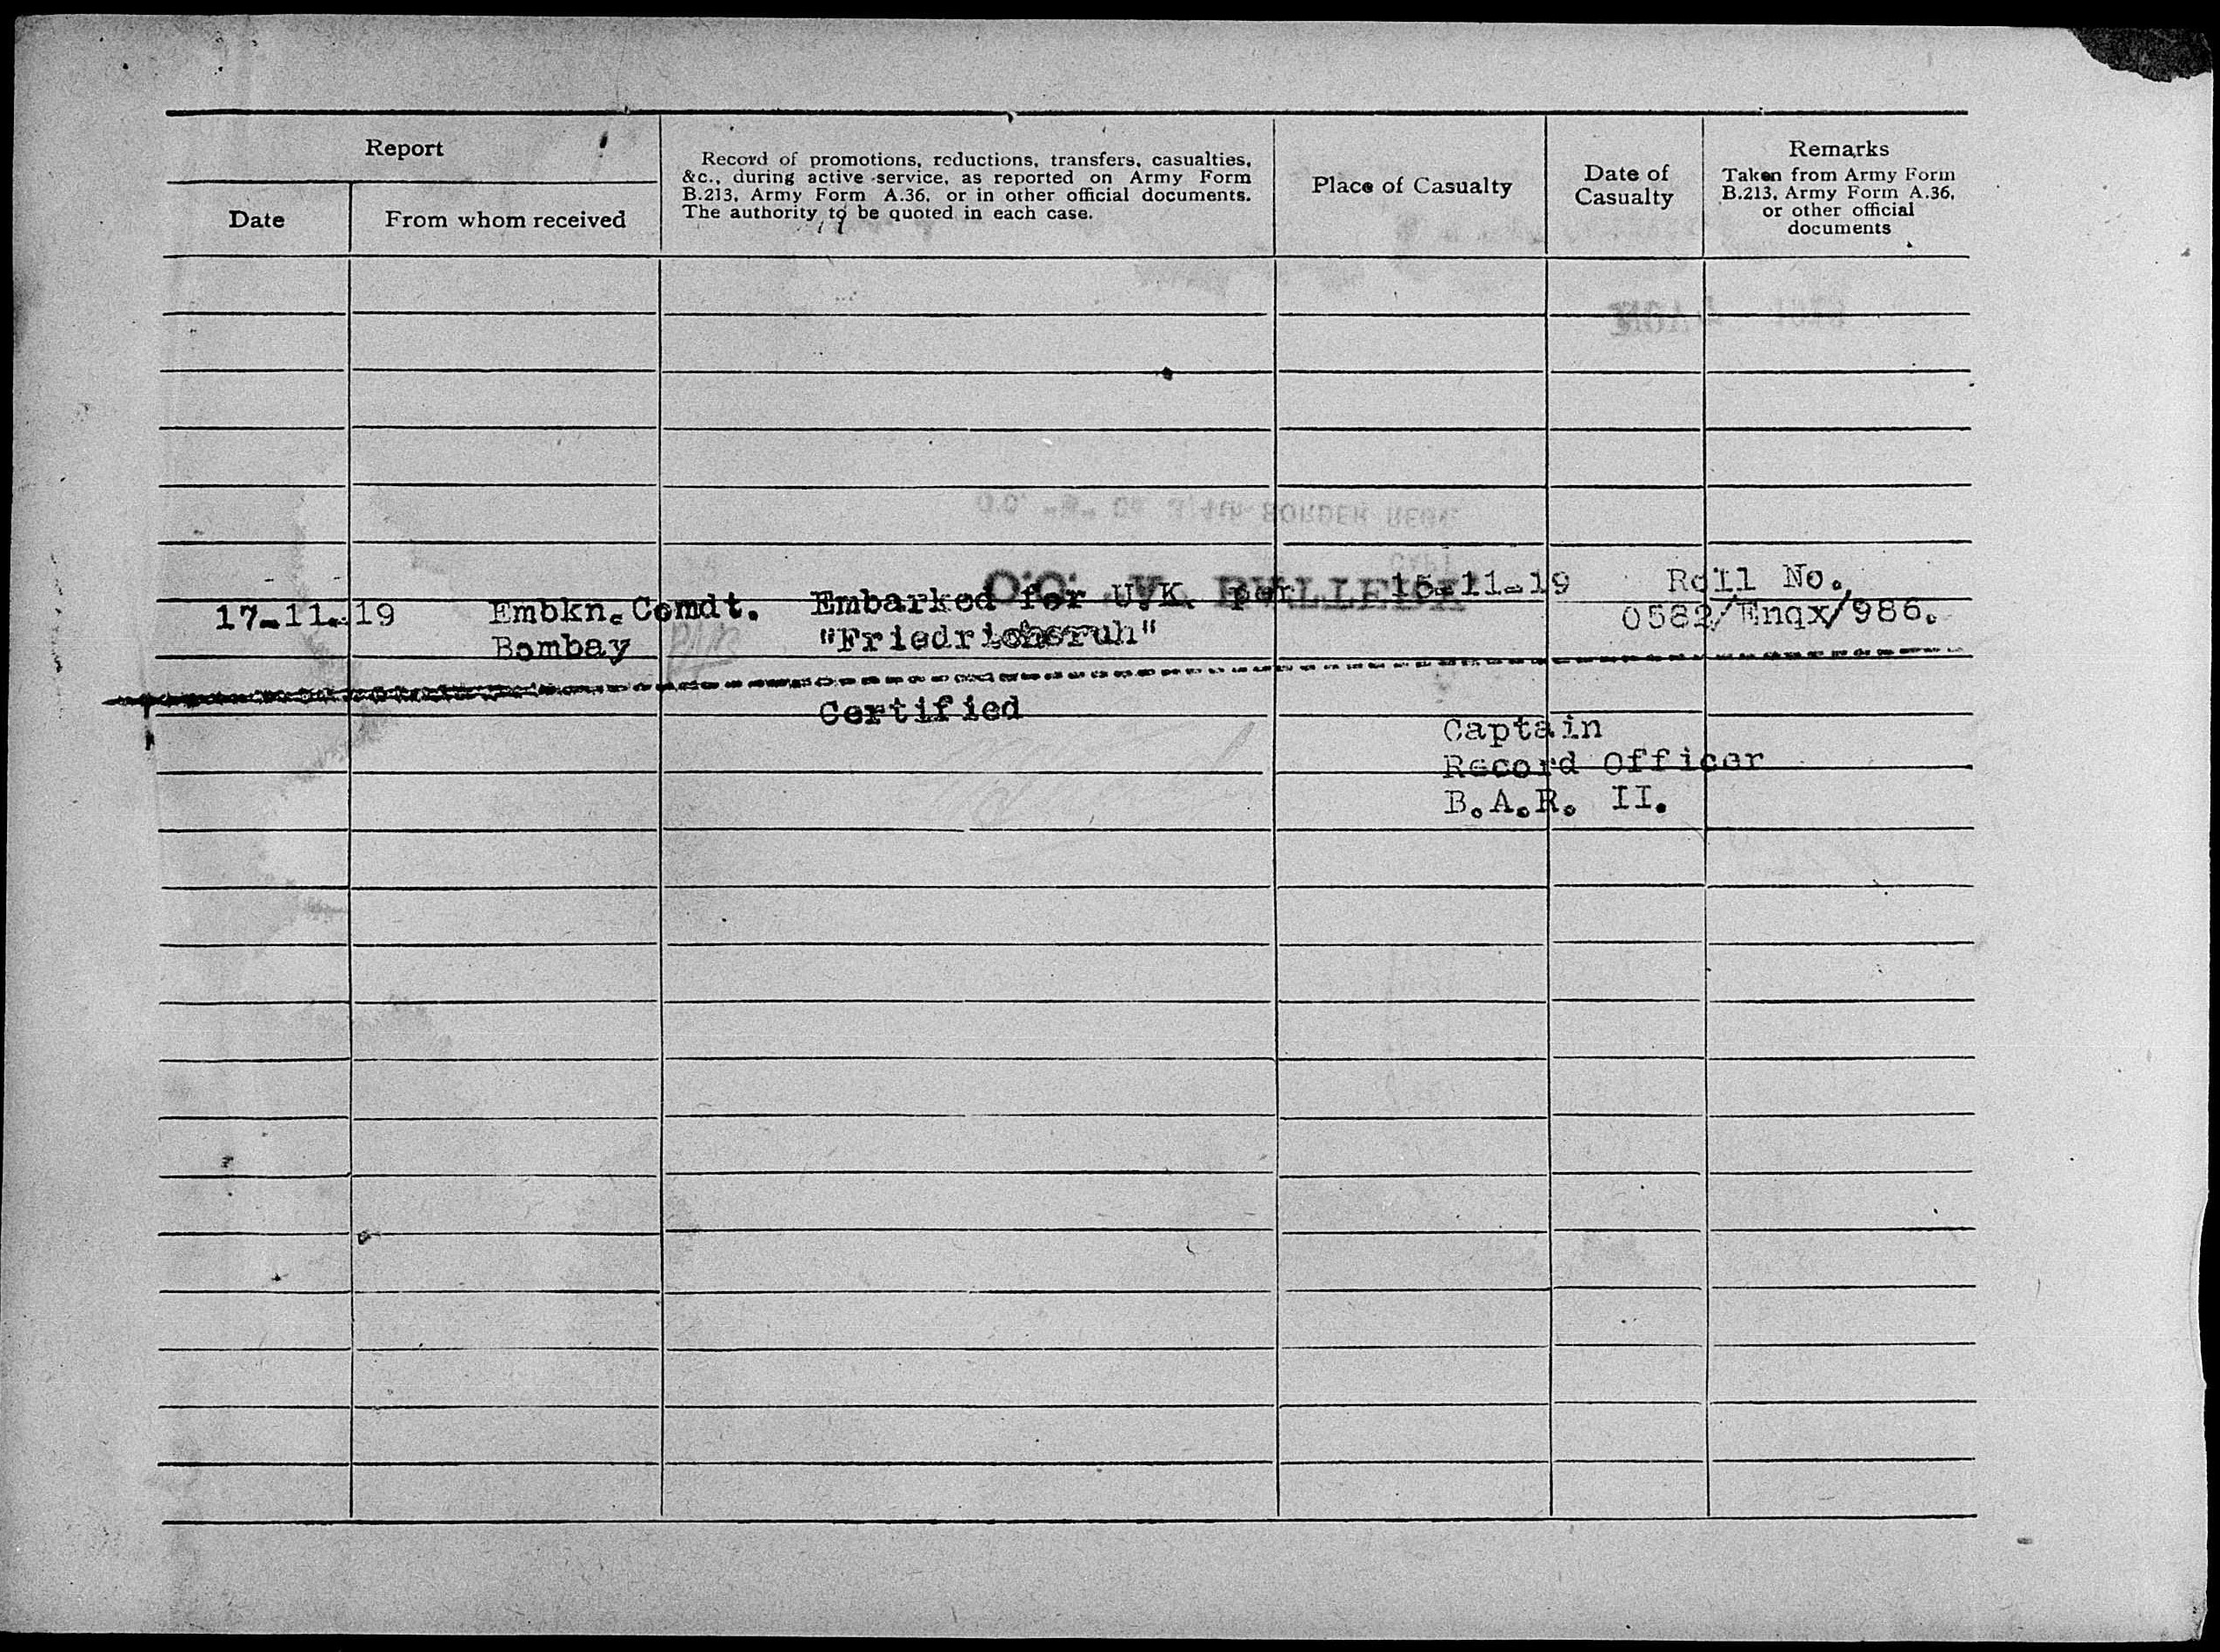 Report
Date
From whom received
Record of promotions, reductions, transfers, casualties,
&c., during active service, as reported on Army Form
B.213, Army Form A.36, or in other official documents.
The authority to be quoted in each case.
Place of Casualty
Date of
Casualty
Remarks
Taken from Army Form
B.213, Army Form A.36,
or other official
documents
17-11-19 Embkn. Comdt. Embarked for U.K. per 15-11-19 Roll No.
Bombay "Friedrichsruh" 0582/Enqx/986.
Certified
Captain
Record Officer
B.A.R. II.